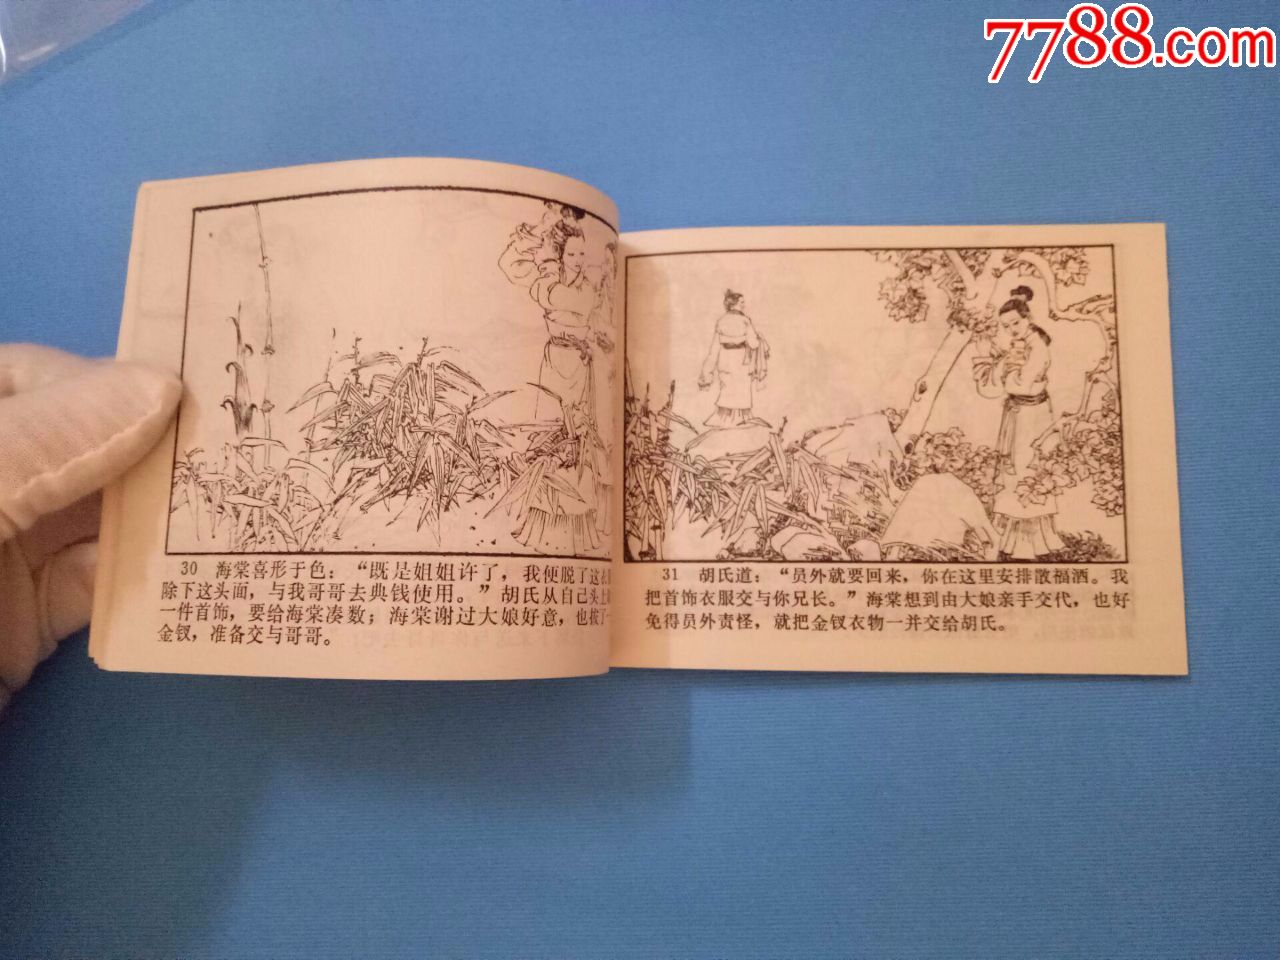 7788.com
30 海棠喜形于色：“既是姐姐许了，我便脱了这衣
除下这头面，与我哥哥去典钱使用。”胡氏从自己头上
一件首饰，要给海棠凑数；海棠谢过大娘好意，也拔了一
金钗，准备交与哥哥。
31 胡氏道：“员外就要回来，你在这里安排散福酒。我
把首饰衣服交与你兄长。”海棠想到由大娘亲手交代，也好
免得员外责怪，就把金钗衣物一并交给胡氏。